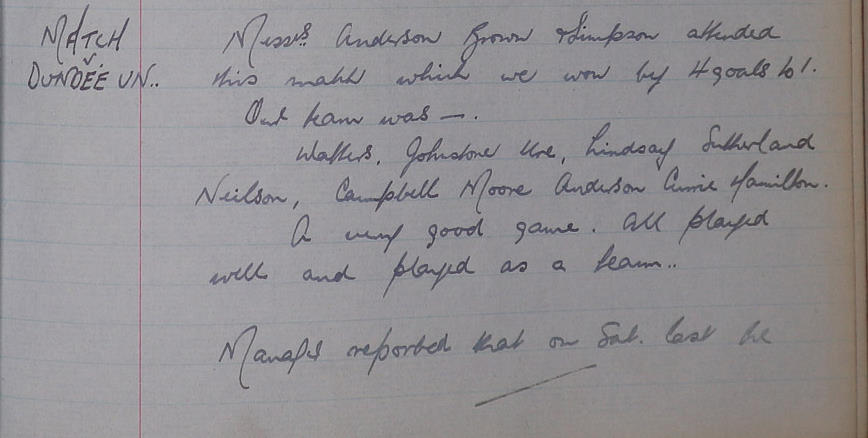 MATCH
v.
DUNDEE UN..
Messrs. Anderson Brown & Simpson attended
this match which we won by 4 goals to 1.
Out team was —.
Walters, Johnstone Ure, Lindsay Sutherland
Neilson, Campbell Moore Anderson Currie Hamilton.
A very good game. All played
well and played as a team..
Manager reported that on Sat. last he